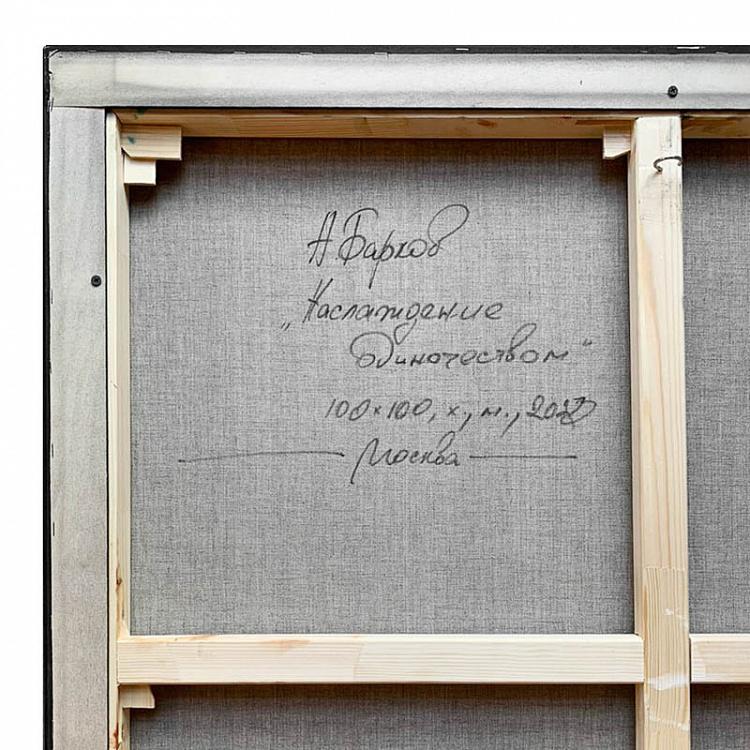 А Барков
„Наслаждение
одиночеством"
100×100, х., м.,
Москва